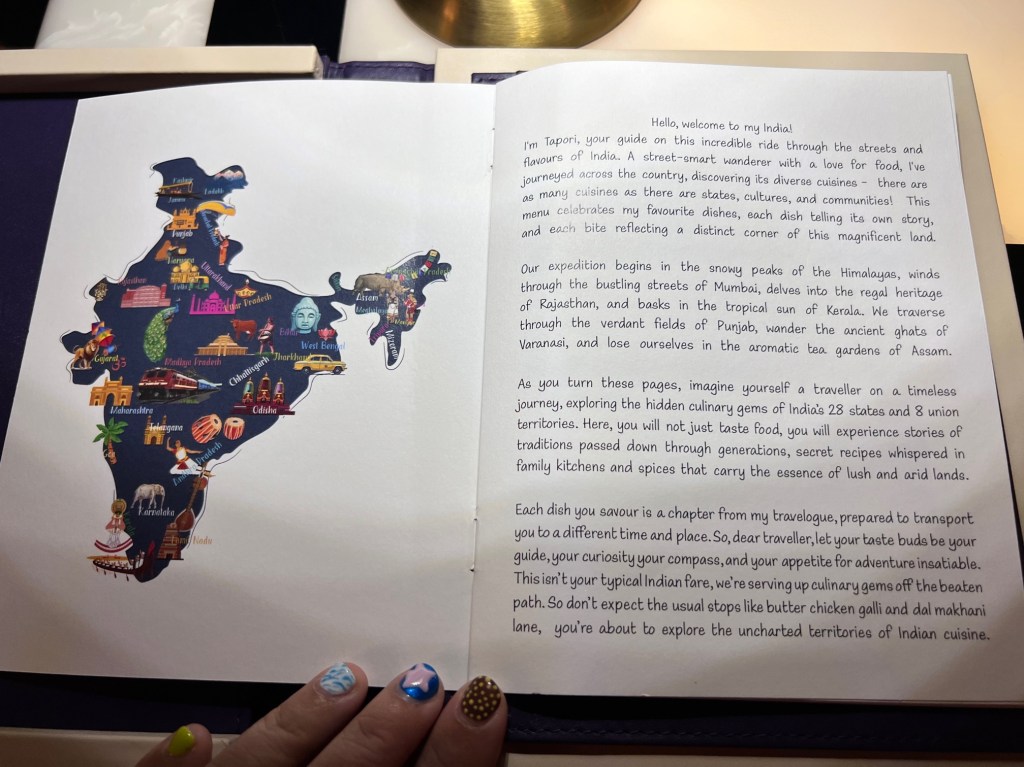 Ladakh
Jammu
Punjab
Haryana
Delhi
Uttarakhand
Rajasthan
Uttar Pradesh
Assam
Meghalaya
Mizoram
Bihar
West Bengal
Gujarat
Madhya Pradesh
Jharkhand
Chhattisgarh
Maharashtra
Odisha
Telangana
Goa
Andhra Pradesh
Karnataka
Tamil Nadu
Hello, welcome to my India!
I'm Tapori, your guide on this incredible ride through the streets and
flavours of India. A street-smart wanderer with a love for food, I've
journeyed across the country, discovering its diverse cuisines - there are
as many cuisines as there are states, cultures, and communities! This
menu celebrates my favourite dishes, each dish telling its own story,
and each bite reflecting a distinct corner of this magnificent land.
Our expedition begins in the snowy peaks of the Himalayas, winds
through the bustling streets of Mumbai, delves into the regal heritage
of Rajasthan, and basks in the tropical sun of Kerala. We traverse
through the verdant fields of Punjab, wander the ancient ghats of
Varanasi, and lose ourselves in the aromatic tea gardens of Assam.
As you turn these pages, imagine yourself a traveller on a timeless
journey, exploring the hidden culinary gems of India's 28 states and 8 union
territories. Here, you will not just taste food, you will experience stories of
traditions passed down through generations, secret recipes whispered in
family kitchens and spices that carry the essence of lush and arid lands.
Each dish you savour is a chapter from my travelogue, prepared to transport
you to a different time and place. So, dear traveller, let your taste buds be your
guide, your curiosity your compass, and your appetite for adventure insatiable.
This isn't your typical Indian fare, we're serving up culinary gems off the beaten
path. So don't expect the usual stops like butter chicken galli and dal makhani
lane, you're about to explore the uncharted territories of Indian cuisine.